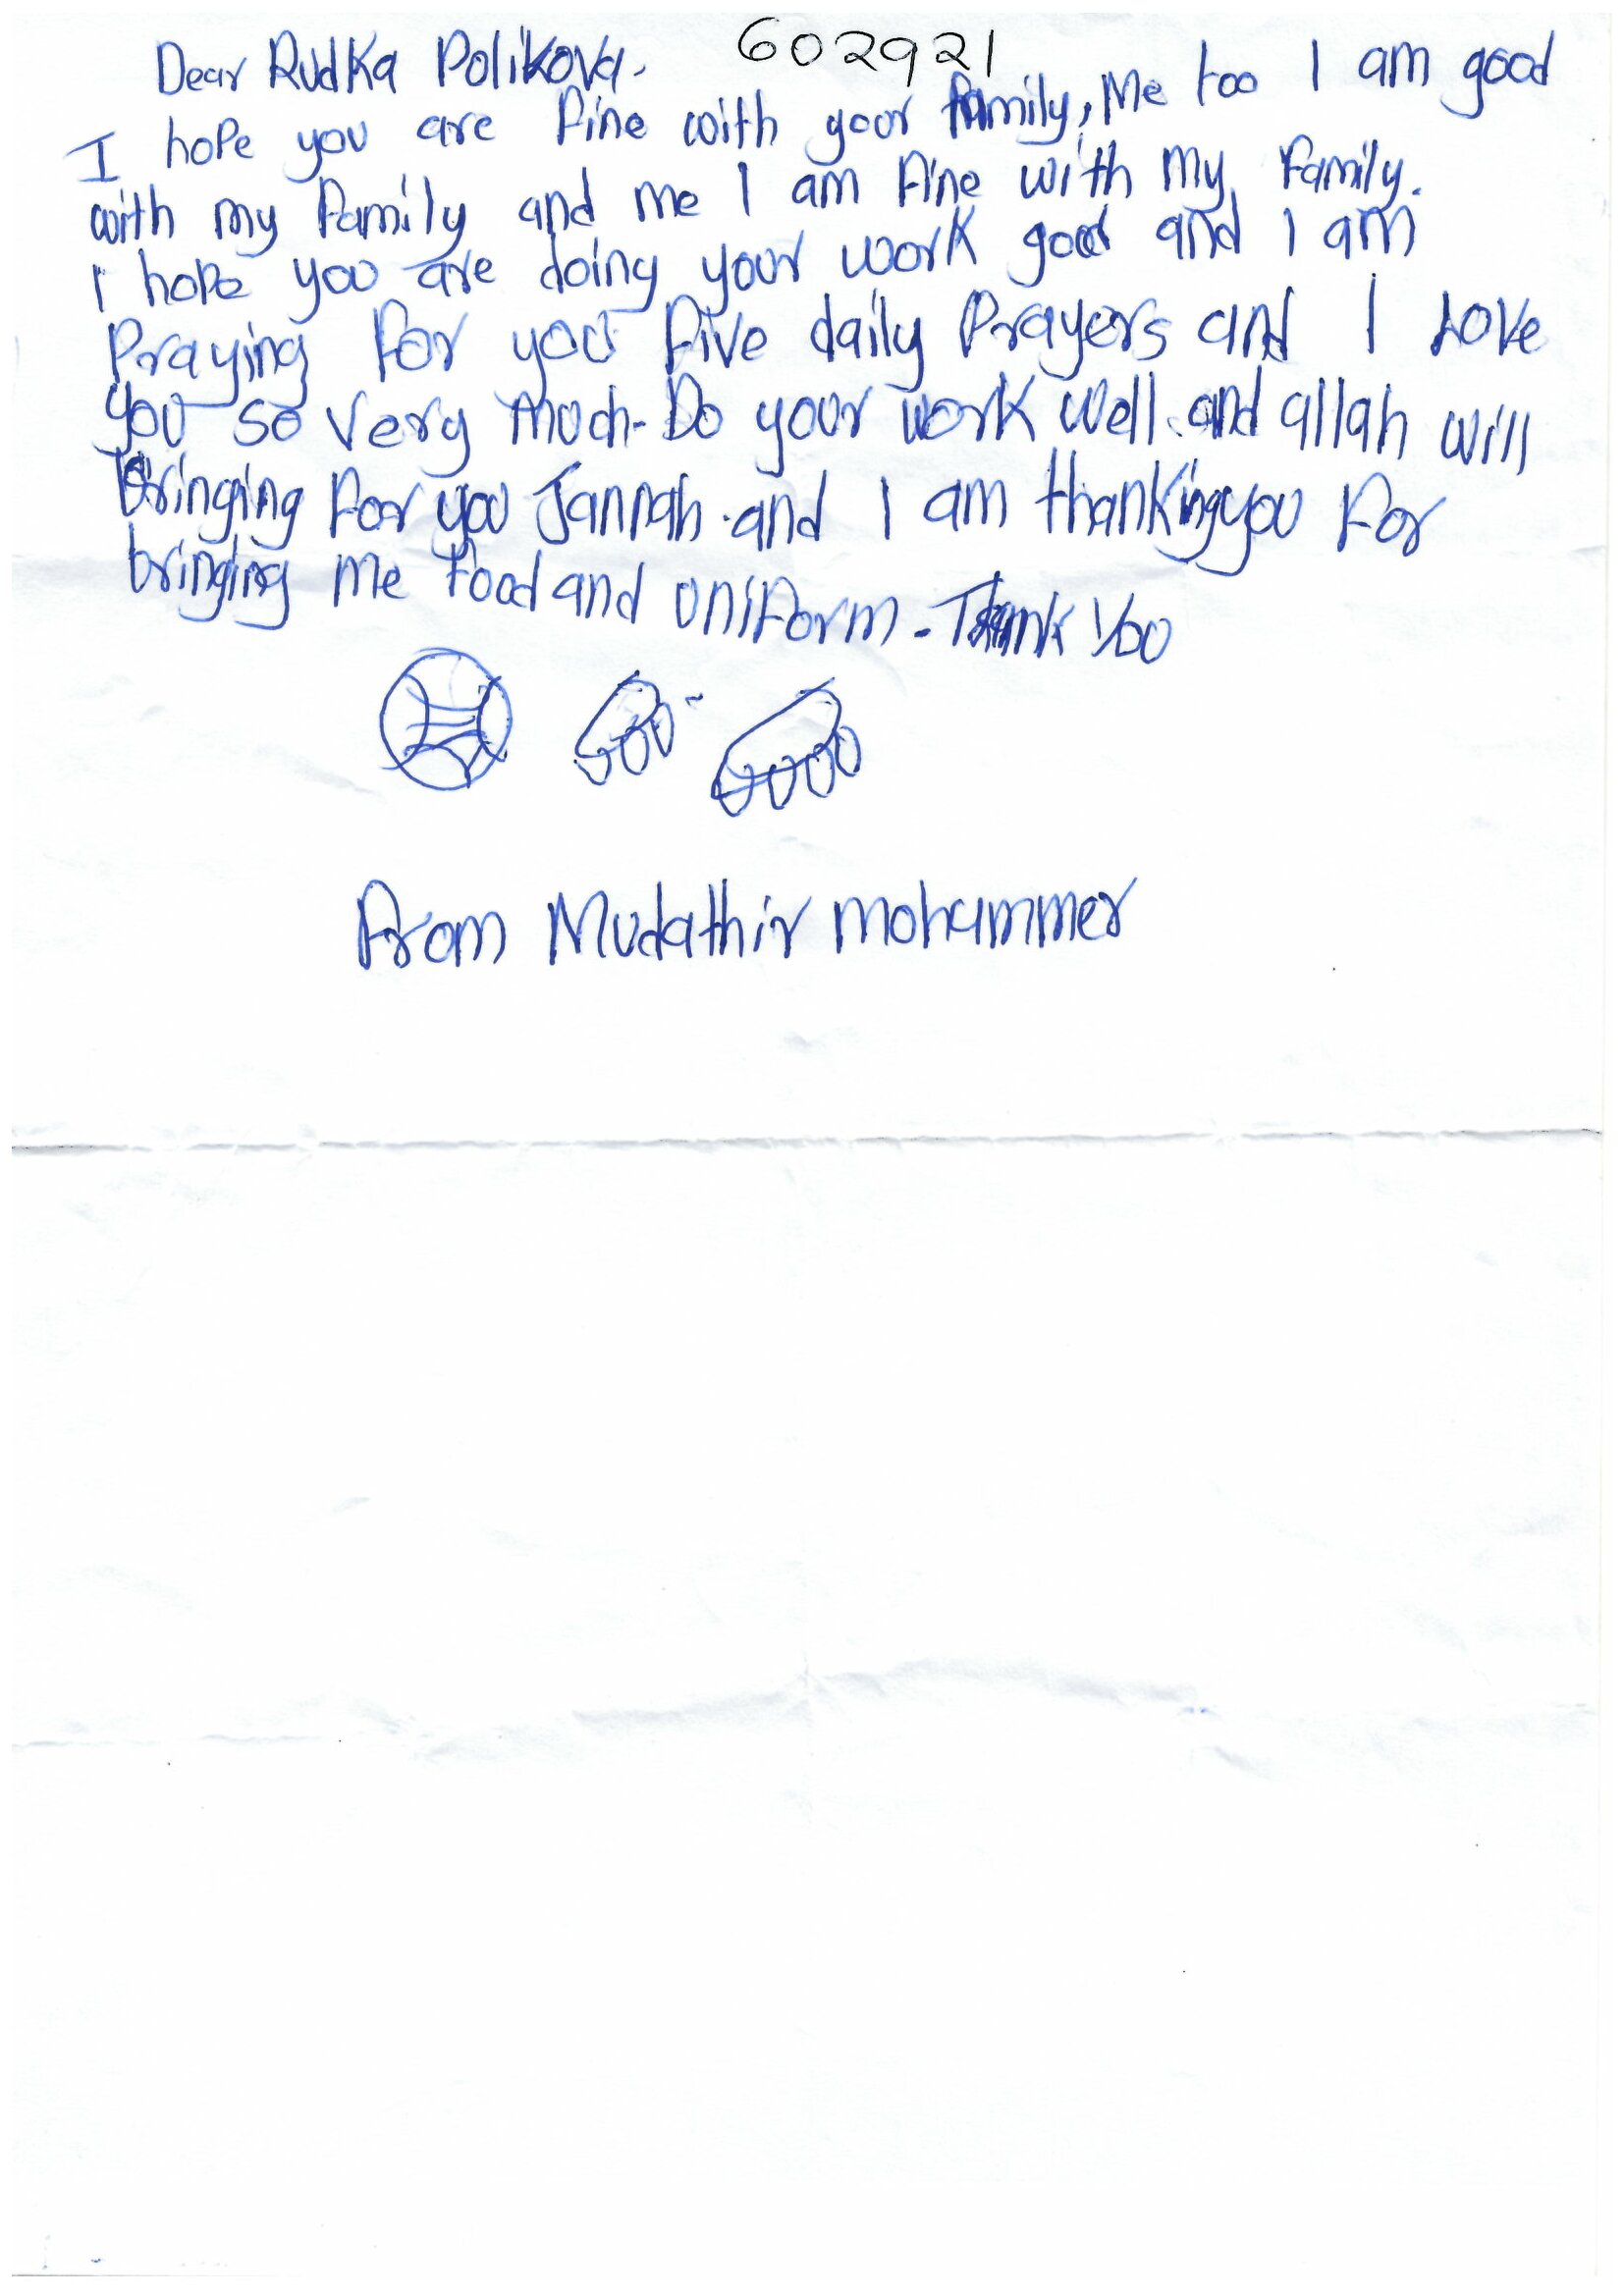 602921
Dear Rudka Polikova.
I hope you are fine with your family, Me too I am good
with my family and me I am fine with my family.
I hope you are doing your work good and I am
Praying for you five daily Prayers and I Love
you so very much. Do your work well. and allah will
bringing for you Jannah. and I am thanking you for
bringing me food and uniform. Thank You
From Mudathir mohammer